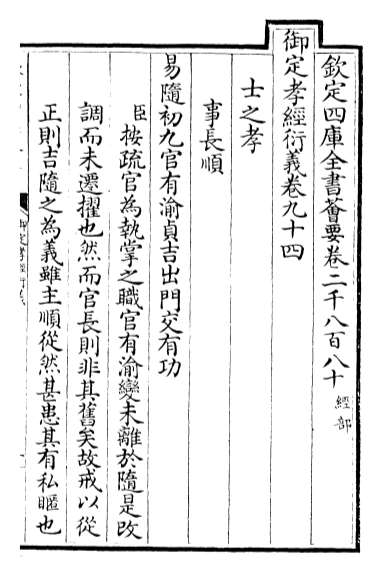 欽定四庫全書薈要卷二千八百八十 經部
御定孝經衍義卷九十四
士之孝
事長順
易隨初九官有渝貞吉出門交有功
臣按疏官為執掌之職官有渝變未離於隨是改
調而未遷擢也然而官長則非其舊矣故戒以從
正則吉隨之為義雖主順從然甚患其有私暱也